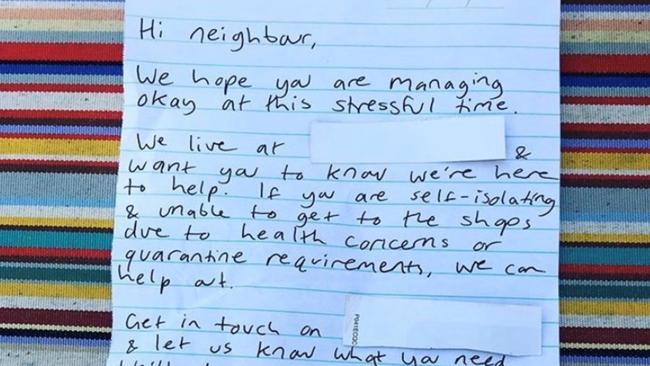 Hi neighbour,
We hope you are managing
okay at this stressful time.
We live at
&
want you to know we're here
to help. If you are self-isolating
& unable to get to the shops
due to health concerns or
quarantine requirements, we can
help out.
Get in touch on
& let us know what you need